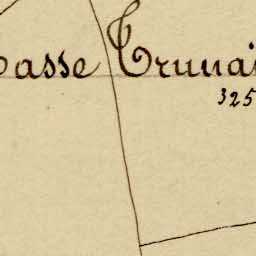 asse Trunai
325